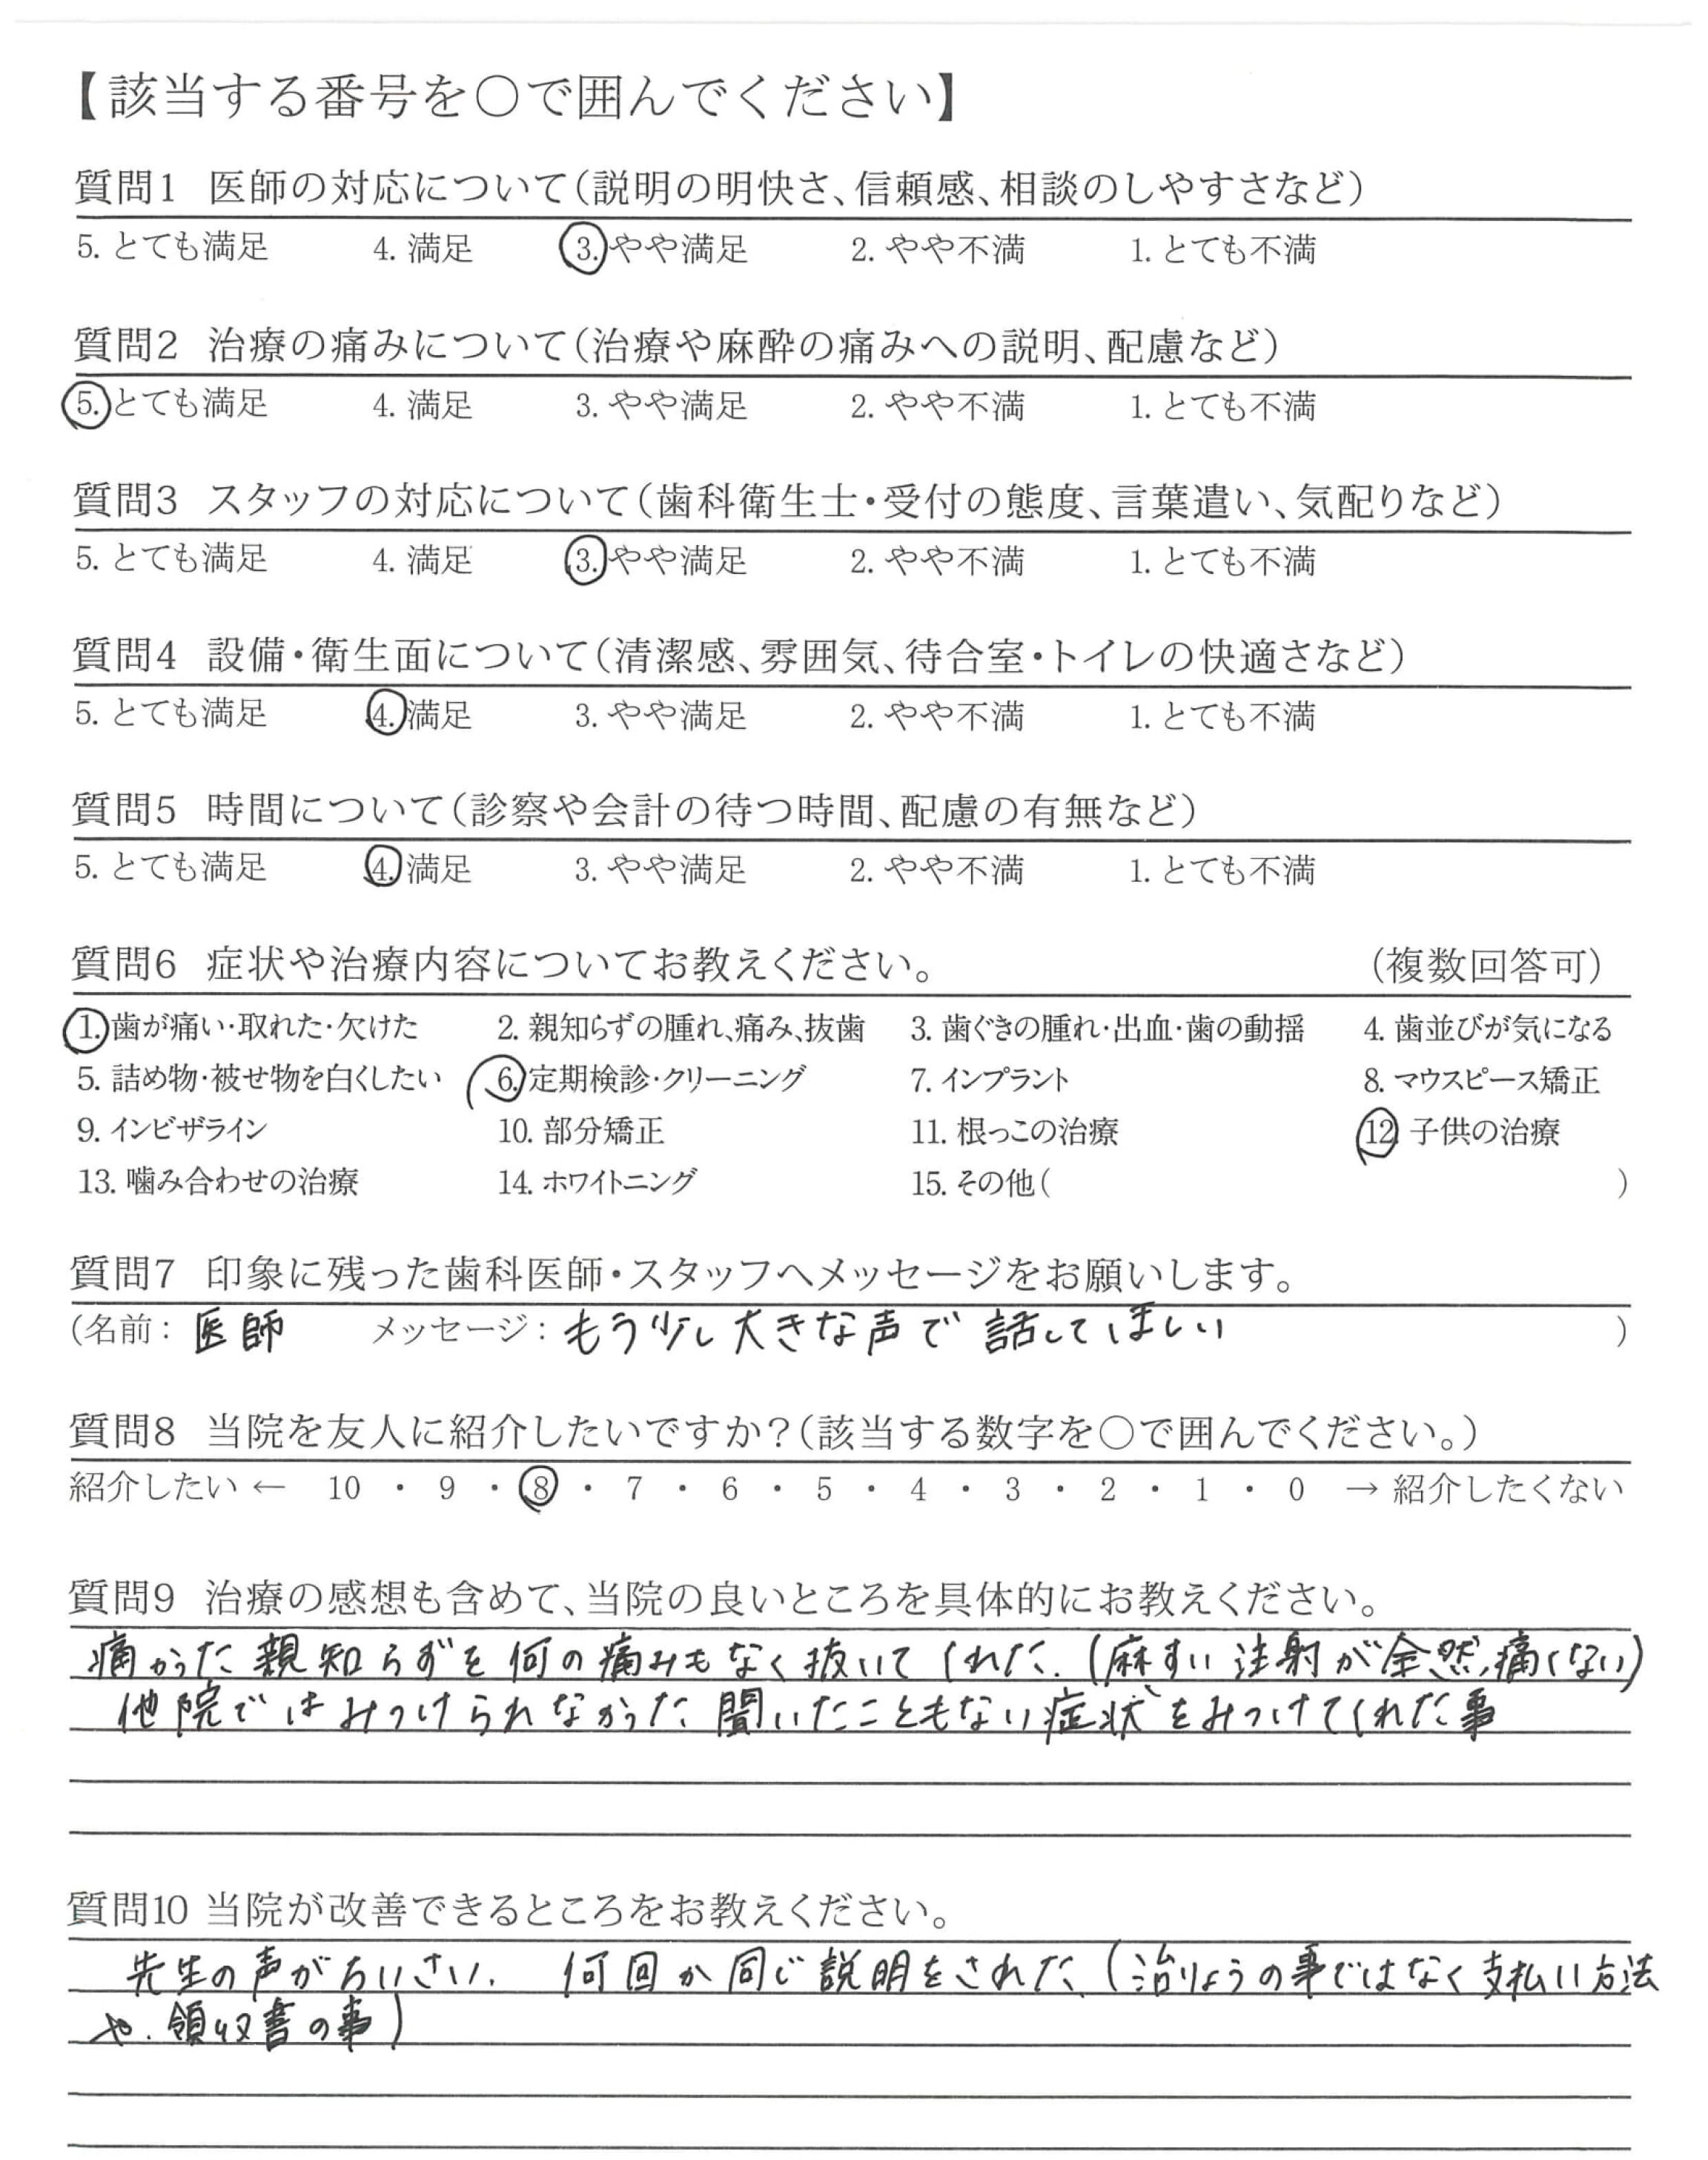 【該当する番号を〇で囲んでください】
質問1 医師の対応について(説明の明快さ、信頼感、相談のしやすさなど)
5. とても満足 4. 満足 3. やや満足 2. やや不満 1. とても不満
質問2 治療の痛みについて(治療や麻酔の痛みへの説明、配慮など)
5. とても満足 4. 満足 3. やや満足 2. やや不満 1. とても不満
質問3 スタッフの対応について(歯科衛生士・受付の態度、言葉遣い、気配りなど)
5. とても満足 4. 満足 3. やや満足 2. やや不満 1. とても不満
質問4 設備・衛生面について(清潔感、雰囲気、待合室・トイレの快適さなど)
5. とても満足 4. 満足 3. やや満足 2. やや不満 1. とても不満
質問5 時間について(診察や会計の待つ時間、配慮の有無など)
5. とても満足 4. 満足 3. やや満足 2. やや不満 1. とても不満
質問6 症状や治療内容についてお教えください。 (複数回答可)
1. 歯が痛い・取れた・欠けた 2. 親知らずの腫れ、痛み、抜歯 3. 歯ぐきの腫れ・出血・歯の動揺 4. 歯並びが気になる
5. 詰め物・被せ物を白くしたい 6. 定期検診・クリーニング 7. インプラント 8. マウスピース矯正
9. インビザライン 10. 部分矯正 11. 根っこの治療 12. 子供の治療
13. 噛み合わせの治療 14. ホワイトニング 15. その他( )
質問7 印象に残った歯科医師・スタッフへメッセージをお願いします。
(名前: 医師 メッセージ: もう少し大きな声で話してほしい )
質問8 当院を友人に紹介したいですか?(該当する数字を〇で囲んでください。)
紹介したい ← 10 ・ 9 ・ 8 ・ 7 ・ 6 ・ 5 ・ 4 ・ 3 ・ 2 ・ 1 ・ 0 → 紹介したくない
質問9 治療の感想も含めて、当院の良いところを具体的にお教えください。
痛かった親知らずを何の痛みもなく抜いてくれた。(麻すい注射が全然痛くない)
他院ではみつけられなかった聞いたこともない症状をみつけてくれた事
質問10 当院が改善できるところをお教えください。
先生の声がちいさい。 何回か同じ説明をされた。(治りょうの事ではなく支払い方法
や、領収書の事)